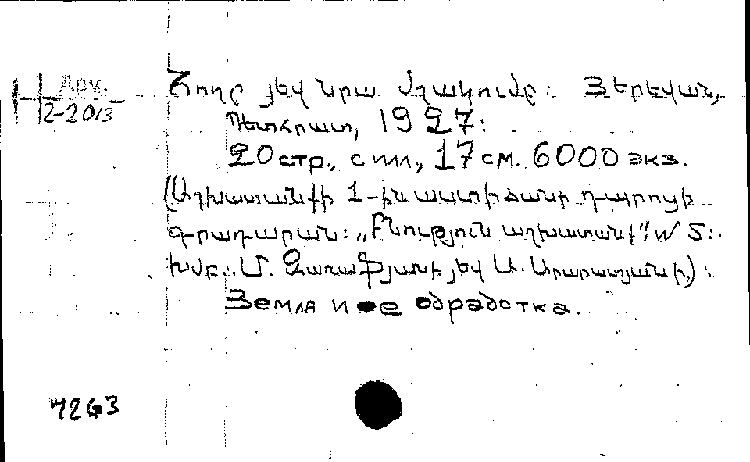 Арм.
2-2013
Հողը յեվ նրա մշակումը: Յերեվան,
Պետհրատ, 1927:
20 стр., с илл., 17 см. 6000 экз.
(Աշխատանքի 1-ին աստիճանի դպրոցի
գրադարան: „Բնություն աշխատանք" № 5:
Խմբ. Մ. յեվ Ա. ):
Земля и ее обработка.
7263